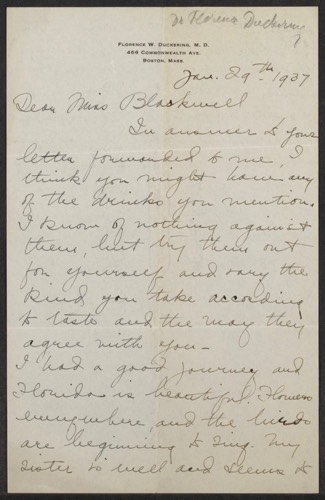 Dr Florence Duckering
FLORENCE W. DUCKERING, M. D.
466 COMMONWEALTH AVE.
BOSTON, MASS.
Jan. 29th 1937
Dear Miss Blackwell
In answer to your
letter forwarded to me, I
think you might have any
of the drinks you mention.
I know of nothing against
them, but try them out
for yourself and vary the
kind you take according
to taste and the way they
agree with you —
I had a good journey and
Florida is beautiful. Flowers
everywhere, and the birds
are beginning to sing. My
sister is well and seems to